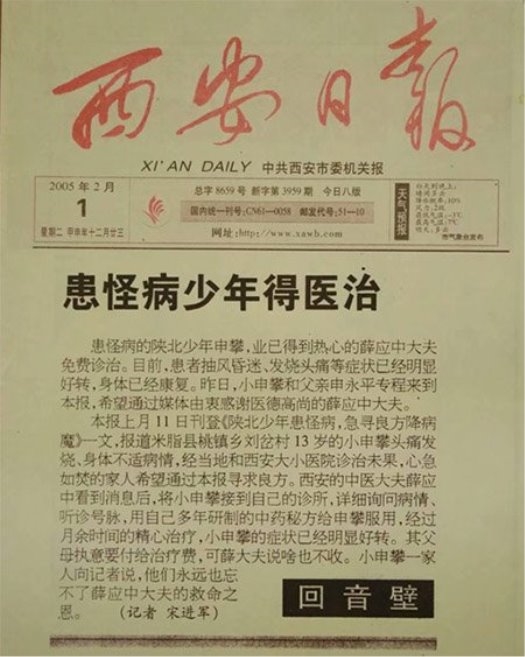 西安日报
XI'AN DAILY 中共西安市委机关报
2005年2月
1
星期二 甲申年十二月廿三
总字8659号 新字第3959期 今日八版
国内统一刊号:CN61—0058 邮发代号:51—10
网址:http://www.xawb.com
天气预报
白天到晚上:
晴间多云
降水概率:10%
风力:2级
最低气温:-3℃
最高气温:7℃
明天:多云
市气象台发布
患怪病少年得医治
患怪病的陕北少年申攀,业已得到热心的薛应中大夫
免费诊治。目前,患者抽风昏迷、发烧头痛等症状已经明显
好转,身体已经康复。昨日,小申攀和父亲申永平专程来到
本报,希望通过媒体由衷感谢医德高尚的薛应中大夫。
本报上月11日刊登《陕北少年患怪病,急寻良方降病
魔》一文,报道米脂县桃镇乡刘岔村13岁的小申攀头痛发
烧、身体不适病情,经当地和西安大小医院诊治未果,心急
如焚的家人希望通过本报寻求良方。西安的中医大夫薛应
中看到消息后,将小申攀接到自己的诊所,详细询问病情、
听诊号脉,用自己多年研制的中药秘方给申攀服用,经过
月余时间的精心治疗,小申攀的症状已经明显好转。其父
母执意要付给治疗费,可薛大夫说啥也不收。小申攀一家
人向记者说,他们永远也忘
不了薛应中大夫的救命之
恩。 (记者 宋进军)
回音壁